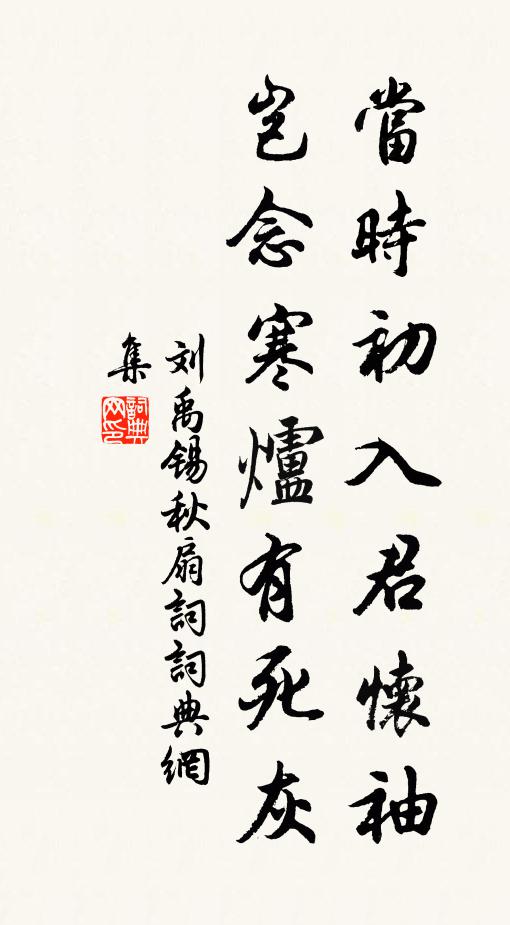 當時初入君懷袖
豈念寒爐有死灰
刘禹锡秋扇詞詞典網
集
詞典
网印